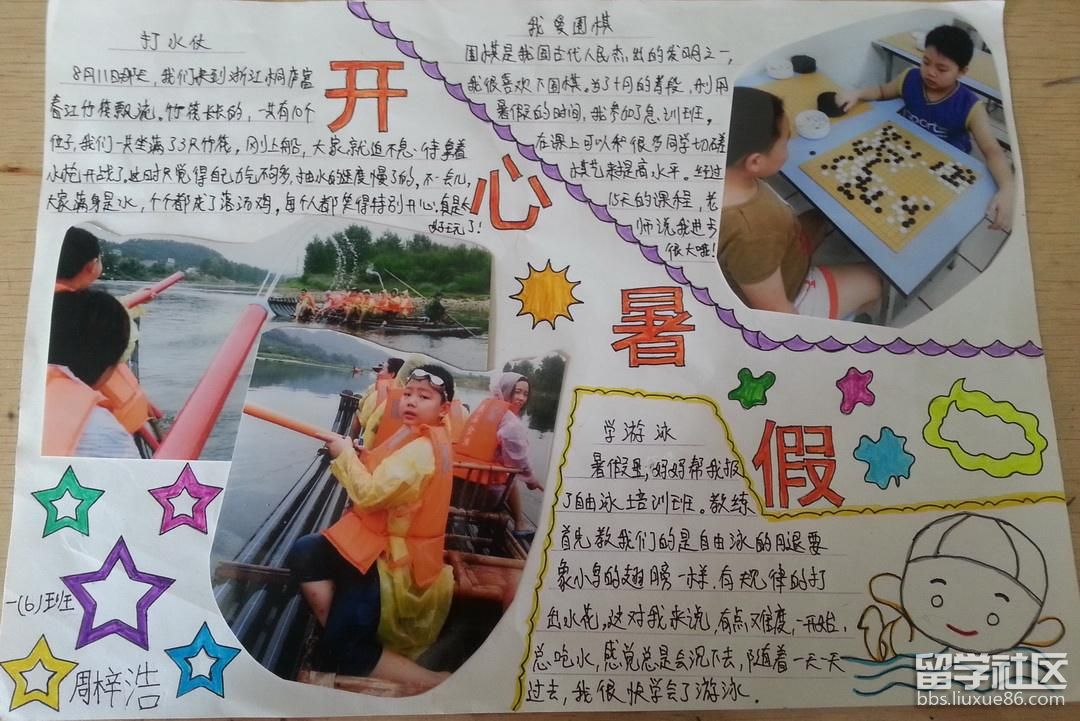 打水仗
8月11日那天,我们来到浙江桐庐富
春江竹筏飘流。竹筏长长的,一共有10个
位子,我们一共坐满了3只竹筏,刚刚上船,大家就迫不及待拿着
水炮开战了。这时只觉得自己力气不够多,抽水的速度慢了的。不一会儿,
大家满身是水,个个都成了落汤鸡,每个人都笑得特别开心,真是太
好玩了!
我爱围棋
围棋是我国古代人民杰出的发明之一,
我很喜欢下围棋。为了十月的考段,利用
暑假的时间,我参加了急训班。
在课上可以和很多同学切磋
棋艺来提高水平。经过
15天的课程,老
师说我进步
很大哦!
开
心
暑
假
学游泳
暑假里,好好帮我报
了自由泳培训班。教练
首先教我们的是自由泳的月退要
象小鸟的翅膀一样,有规律的打
出水花,这对我来说,有点难度,一开始,
总吃水,感觉总是会沉下去,随着一天一天
过去,我很快学会了游泳.
一(6)班
周梓浩
留学社区
bbs.liuxue86.com